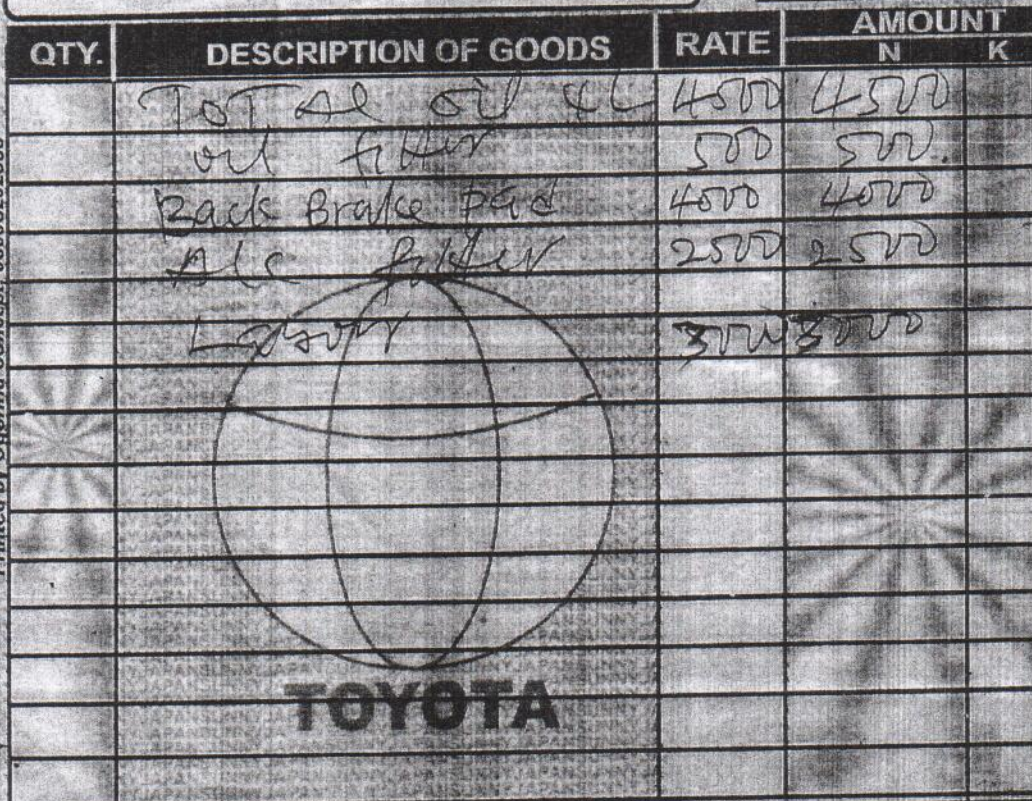 QTY. DESCRIPTION OF GOODS RATE AMOUNT
N K
TOTAL oil 4L 4500 4500
oil filter 500 500.
Back Brake pad 4000 4000
A/c filter 2500 2500
Labour 3000 3000
TOYOTA